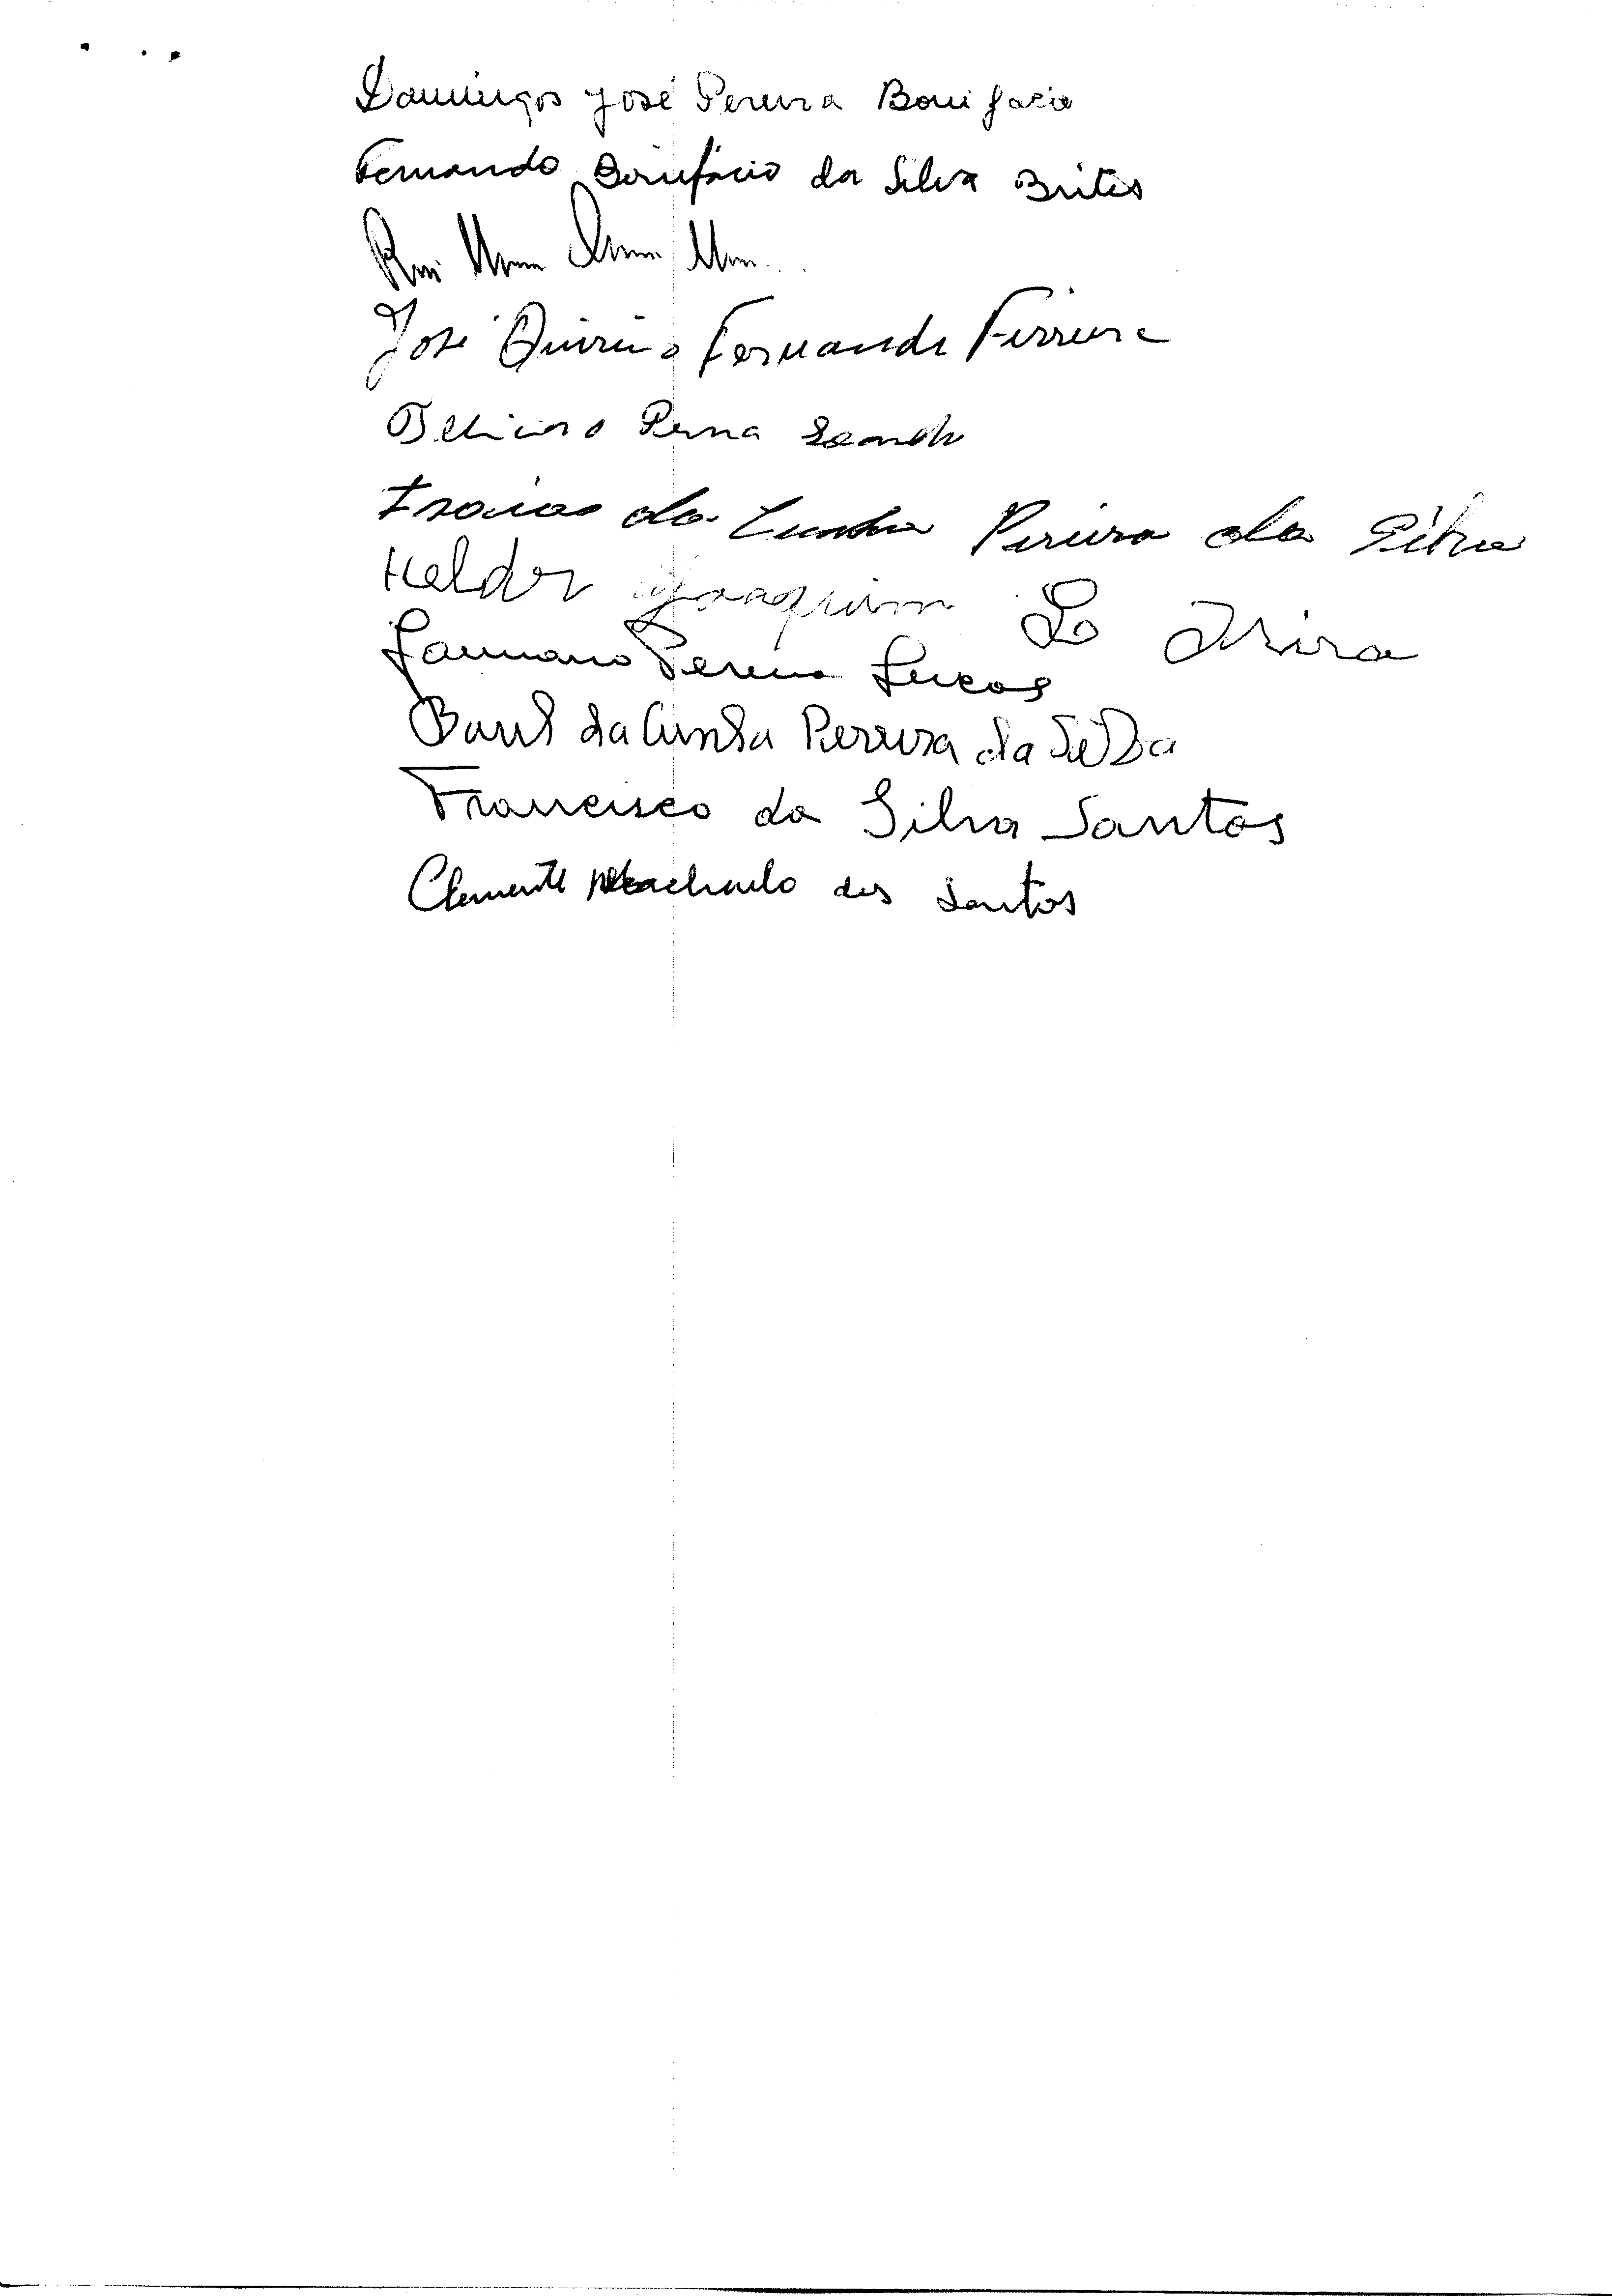 Domingos José Pereira Bonifacio
Fernando Bonifácio da Silva Brites
Rui
José Quirino Fernandes Ferreira
Pena
Isaias da Cunha Pereira da Silva
Helder Joaquim
Germano Pereira Lucas
da Cunha Perreira da Silva
Francisco da Silva Santos
Clemente Machado dos Santos